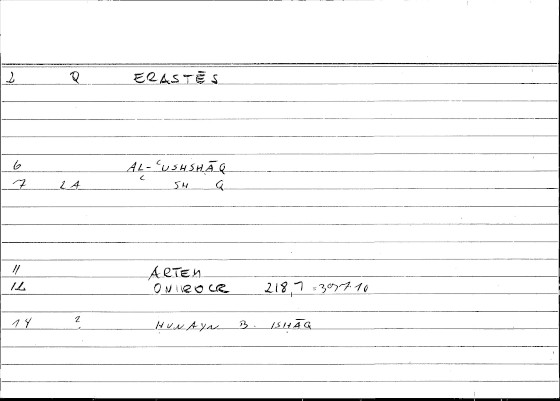 2 Q ERASTĒS
6 AL-ʿUSHSHĀQ
7 LA ʿ SH Q
11 ARTEM
12 ONIROCR 218,7
14 ? HUNAYN B. ISHĀQ